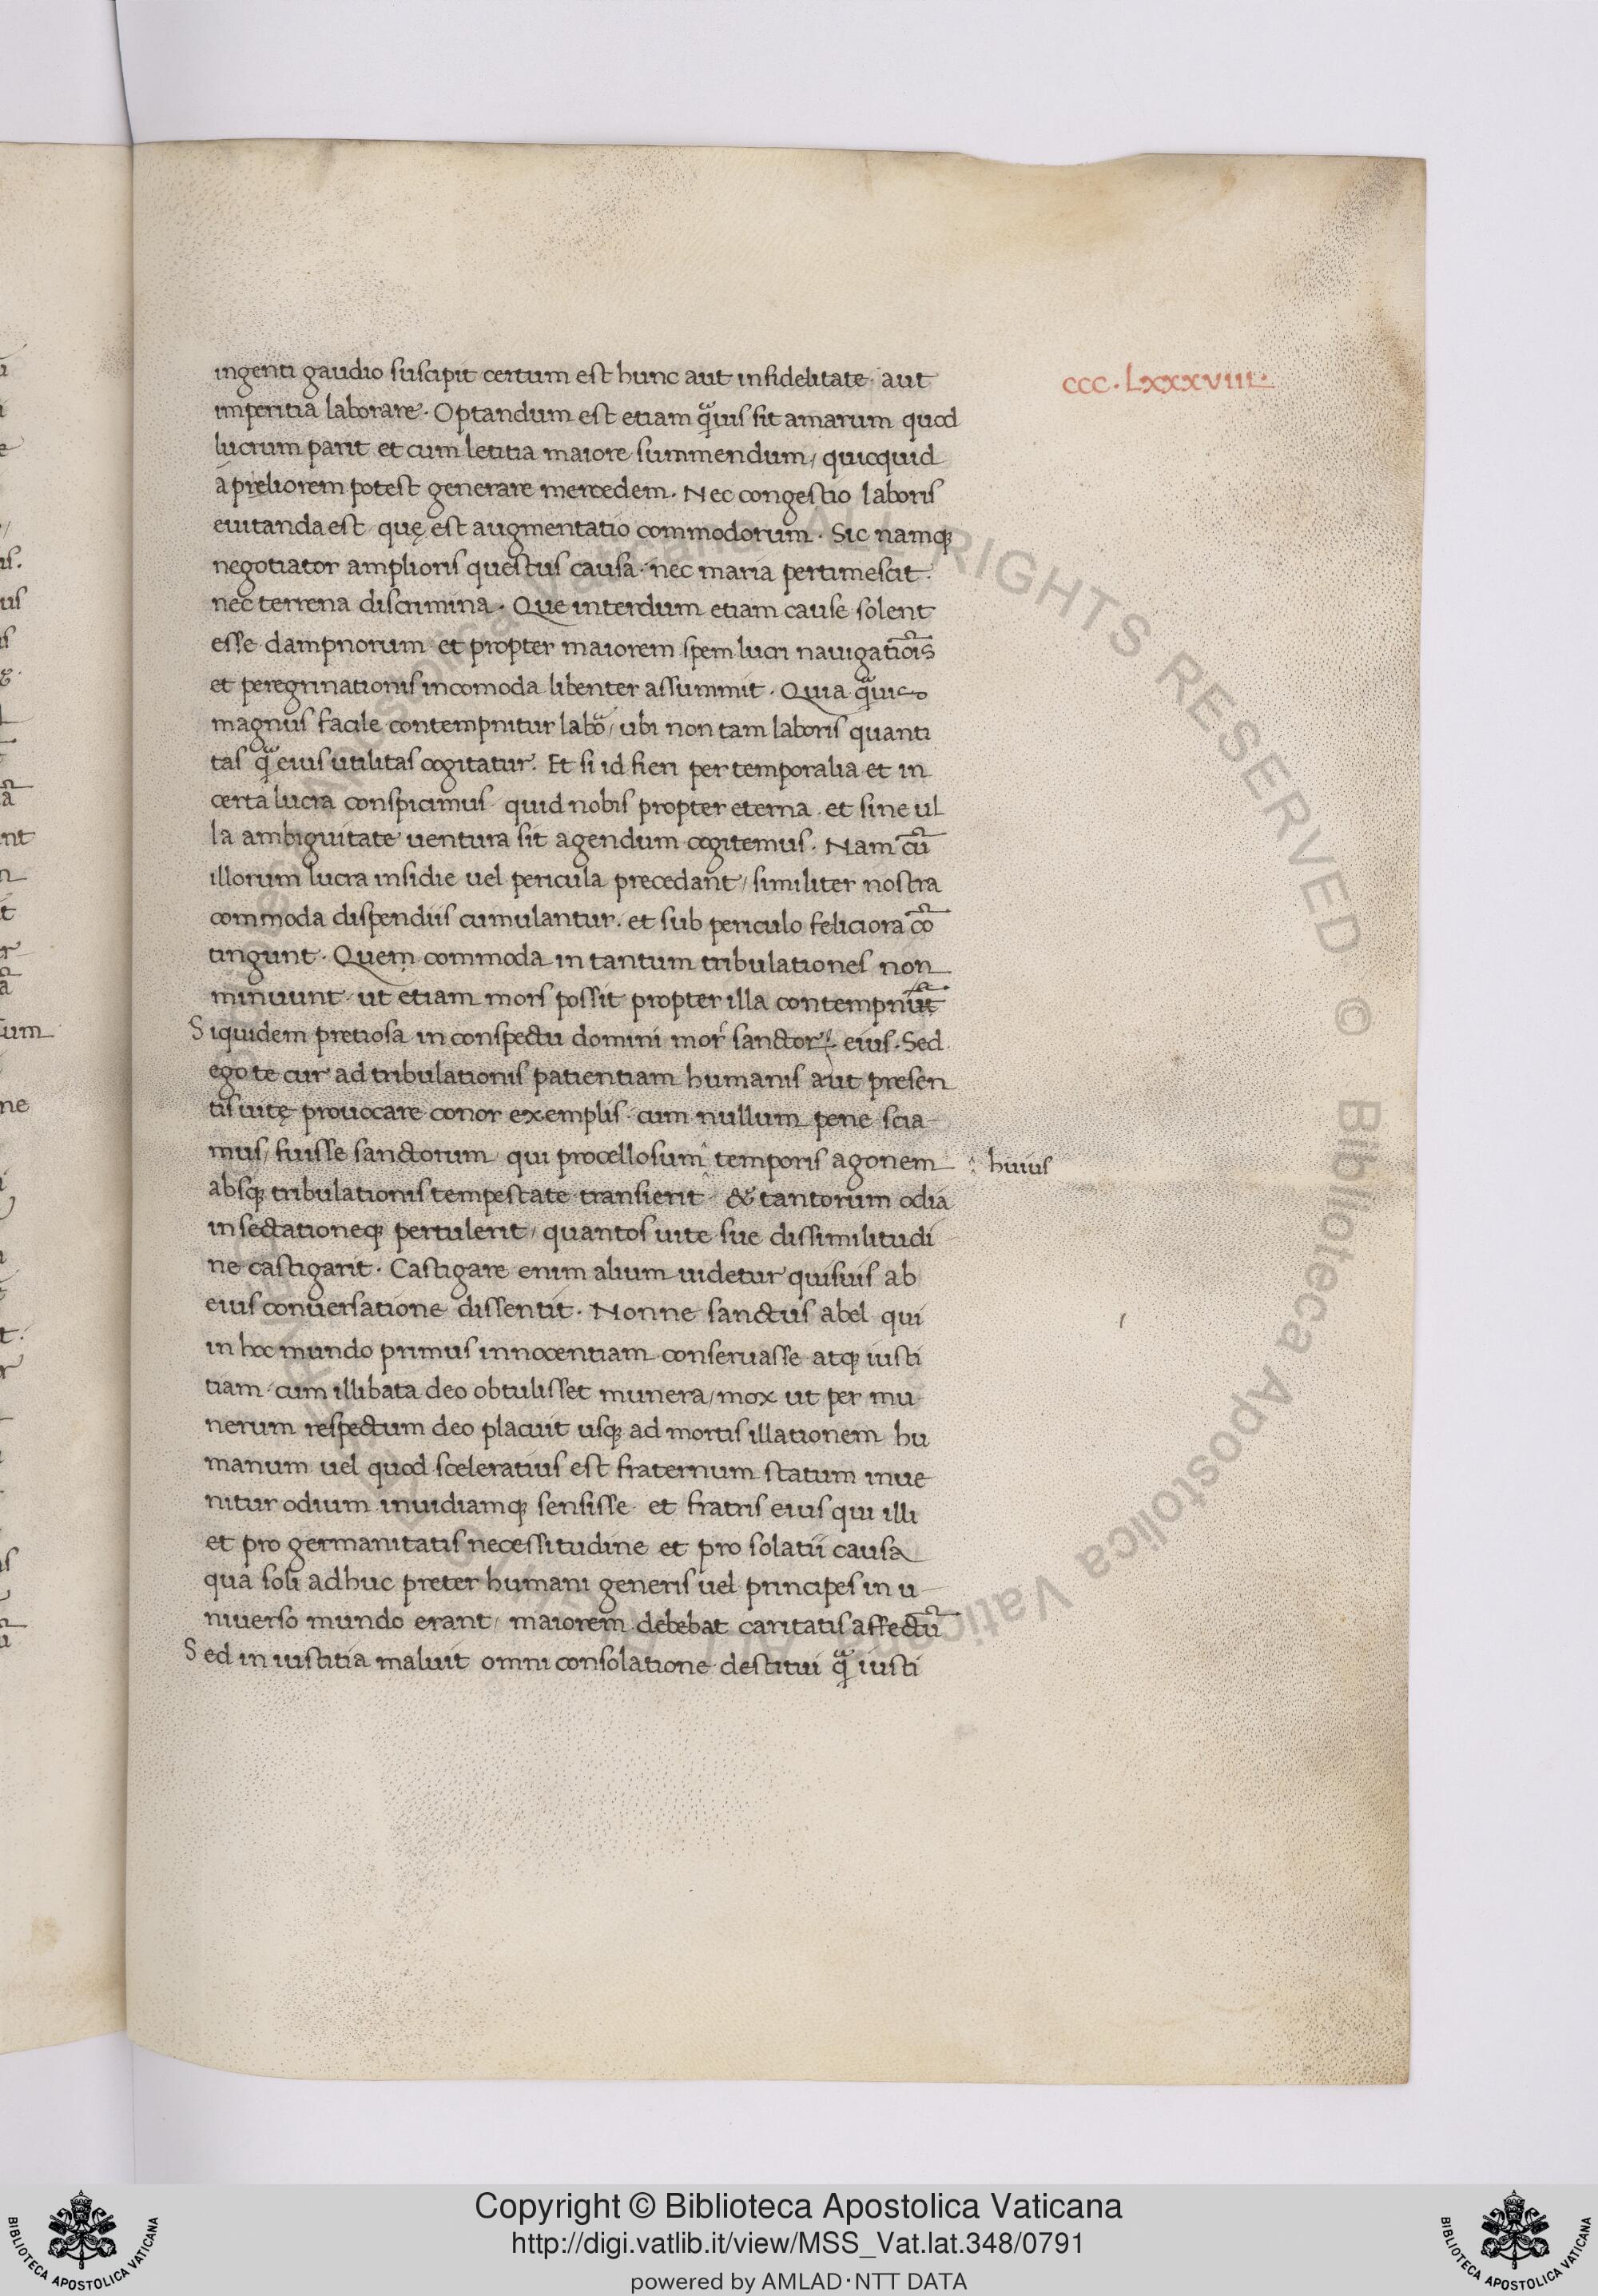 ccc.Lxxxviiii.
ingenti gaudio suscipit certum est hunc aut infidelitate. aut
imperitia laborare. Optandum est etiam q̃uis sit amarum quod
lucrum parit et cum letitia maiore summendum, quicquid
a preliorem potest generare mercedem. Nec congestio laboris
euitanda est quę est augmentatio commodorum. Sic namq;
negotiator amplioris questus causa. nec maria pertimescit.
nec terrena discrimina. Que interdum etiam cause solent
esse dampnorum et propter maiorem spem lucri nauigatiõis
et peregrinationis incomoda libenter assummit. Quia q̃uis
magnus facile contempnitur labõ, ubi non tam laboris quanti
tas q̃ eius utilitas cogitatur. Et si id fieri per temporalia et in
certa lucra conspicimus quid nobis propter eterna. et sine ul
la ambiguitate uentura sit agendum cogitemus. Nam cũ
illorum lucra insidie uel pericula precedant, similiter nostra
commoda dispendiis cumulantur. et sub periculo feliciora cõ
tingunt. Quem commoda in tantum tribulationes non
minuunt ut etiam mors possit propter illa contempni ut
Siquidem pretiosa in conspectu domini mors sanctorꝝ eius. Sed
ego te cur ad tribulationis patientiam humanis aut presen
tis uitę prouocare conor exemplis cum nullum pene scia
mus, fuisse sanctorum qui procellosum temporis agonem
huius
absq; tribulationis tempestate transierit & tantorum odia
insectationeq; pertulerit, quantos uite sue dissimilitudi
ne castigarit. Castigare enim alium uidetur quisuis ab
eius conuersatione dissentit. Nonne sanctus abel qui
in hoc mundo primus innocentiam conseruasse atq; iusti
tiam cum illibata deo obtulisset munera, mox ut per mu
nerum respectum deo placuit usq; ad mortis illationem hu
manum uel quod sceleratius est fraternum statum inue
nitur odium inuidiamq; sensisse et fratris eius qui illi
et pro germanitatis necessitudine et pro solatii causa
qua soli adhuc preter humani generis uel principes in u
niuerso mundo erant, maiorem debebat caritatis affectũ
Sed in iustitia maluit omni consolatione destitui q̃ iusti
Biblioteca Apostolica Vaticana ALL RIGHTS RESERVED ©
Copyright © Biblioteca Apostolica Vaticana
http://digi.vatlib.it/view/MSS_Vat.lat.348/0791
powered by AMLAD·NTT DATA
BIBLIOTECA APOSTOLICA VATICANA
BIBLIOTECA APOSTOLICA VATICANA